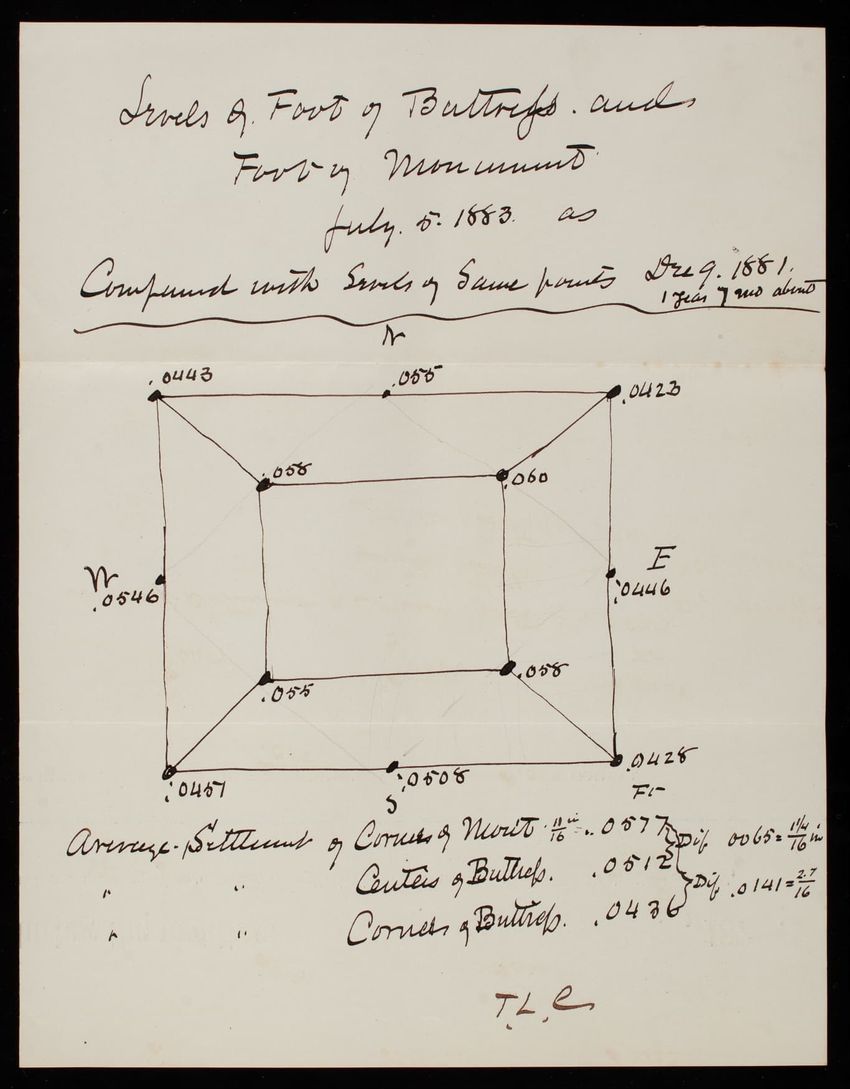 Levels of Foot of Buttress. and
Foot of Monument
July. 5. 1883. as
Compared with Levels of Same points Dec 9. 1881.
1 year 7 mo about
N
.0443
.055
.0423
.058
.060
W
.0546
E
.0446
.055
.058
.0457
.0508
S
.0428
Ft
Average Settlement of Corners of Mon't 11/16 in .0577 Dif .0065 = 1 1/4/16 in
" " Centers of Buttress. .0512
Dif .0141 = 2.7/16
" " Corners of Buttress. .0436
T.L.C